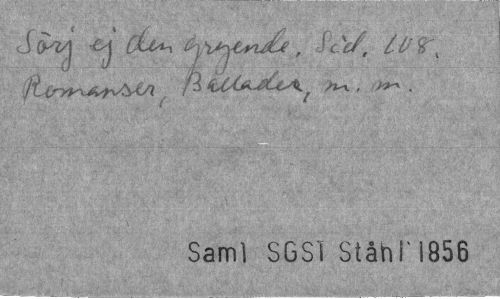 Sörj ej den gryende. Sid. 108.
Romanser, Ballader, m. m.
Saml SGS1 Ståhl 1856